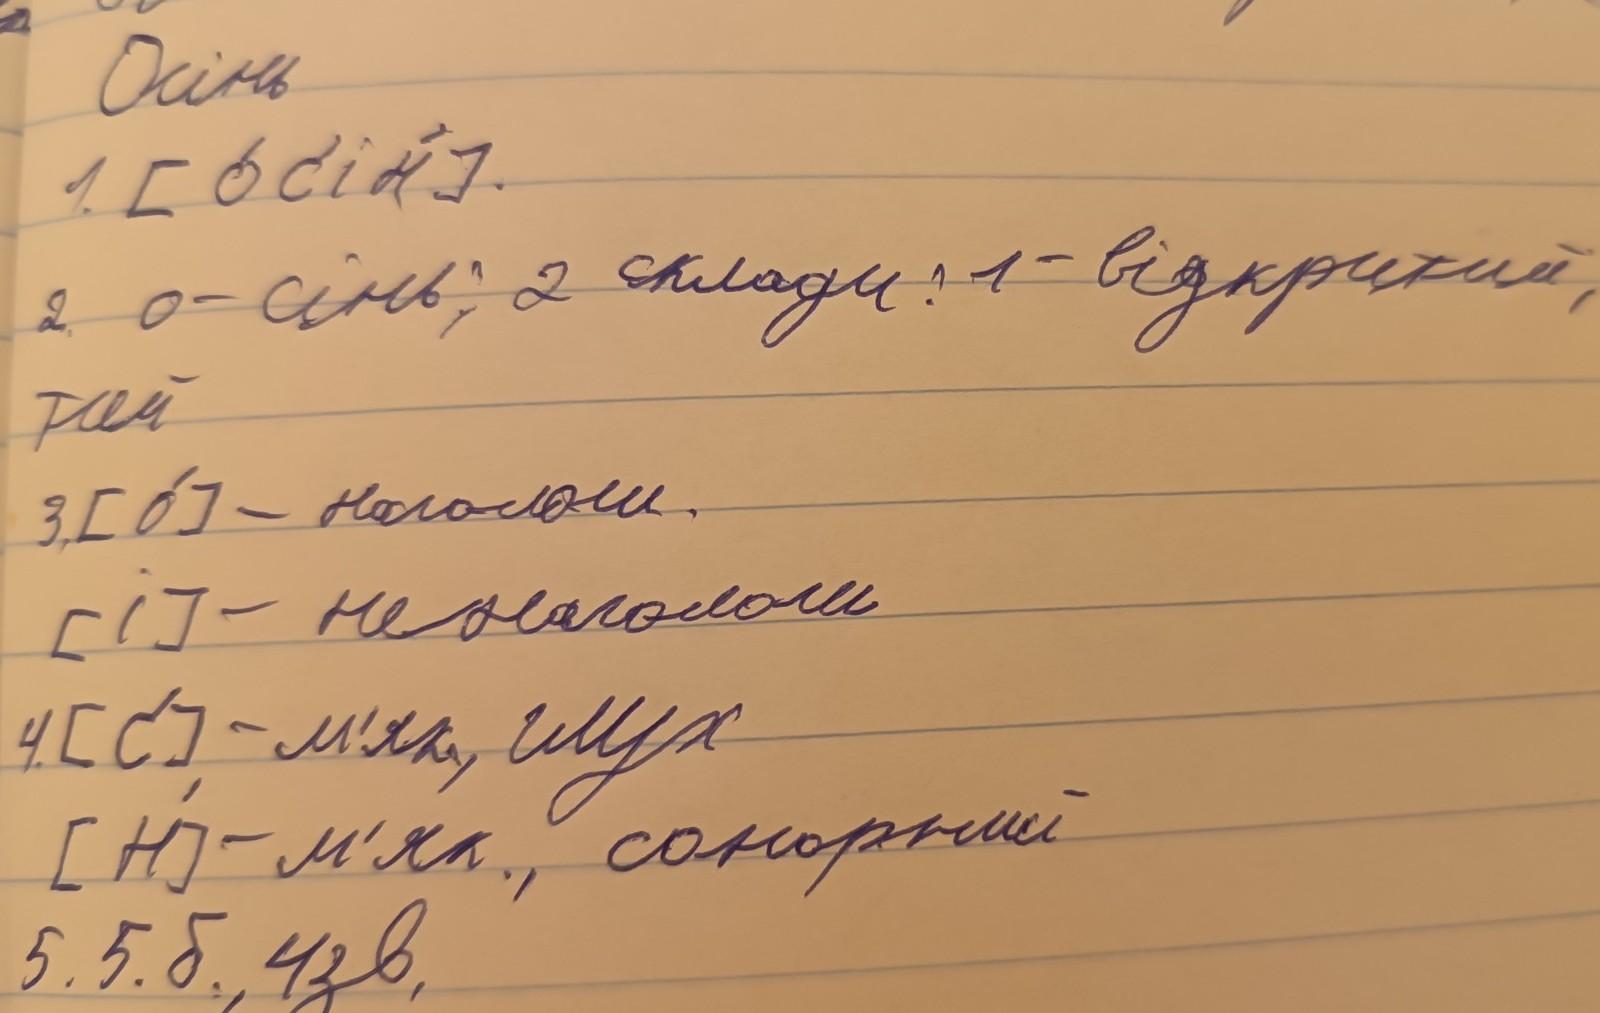 Осінь
1. [о́с́ін́].
2. о-сінь; 2 склади: 1- відкритий,
тий
3. [о́] - наголош.
[і] - ненаголош
4. [с́] - м'як., глух
[н́] - м'як., сонорний
5. 5.б., 4зв,